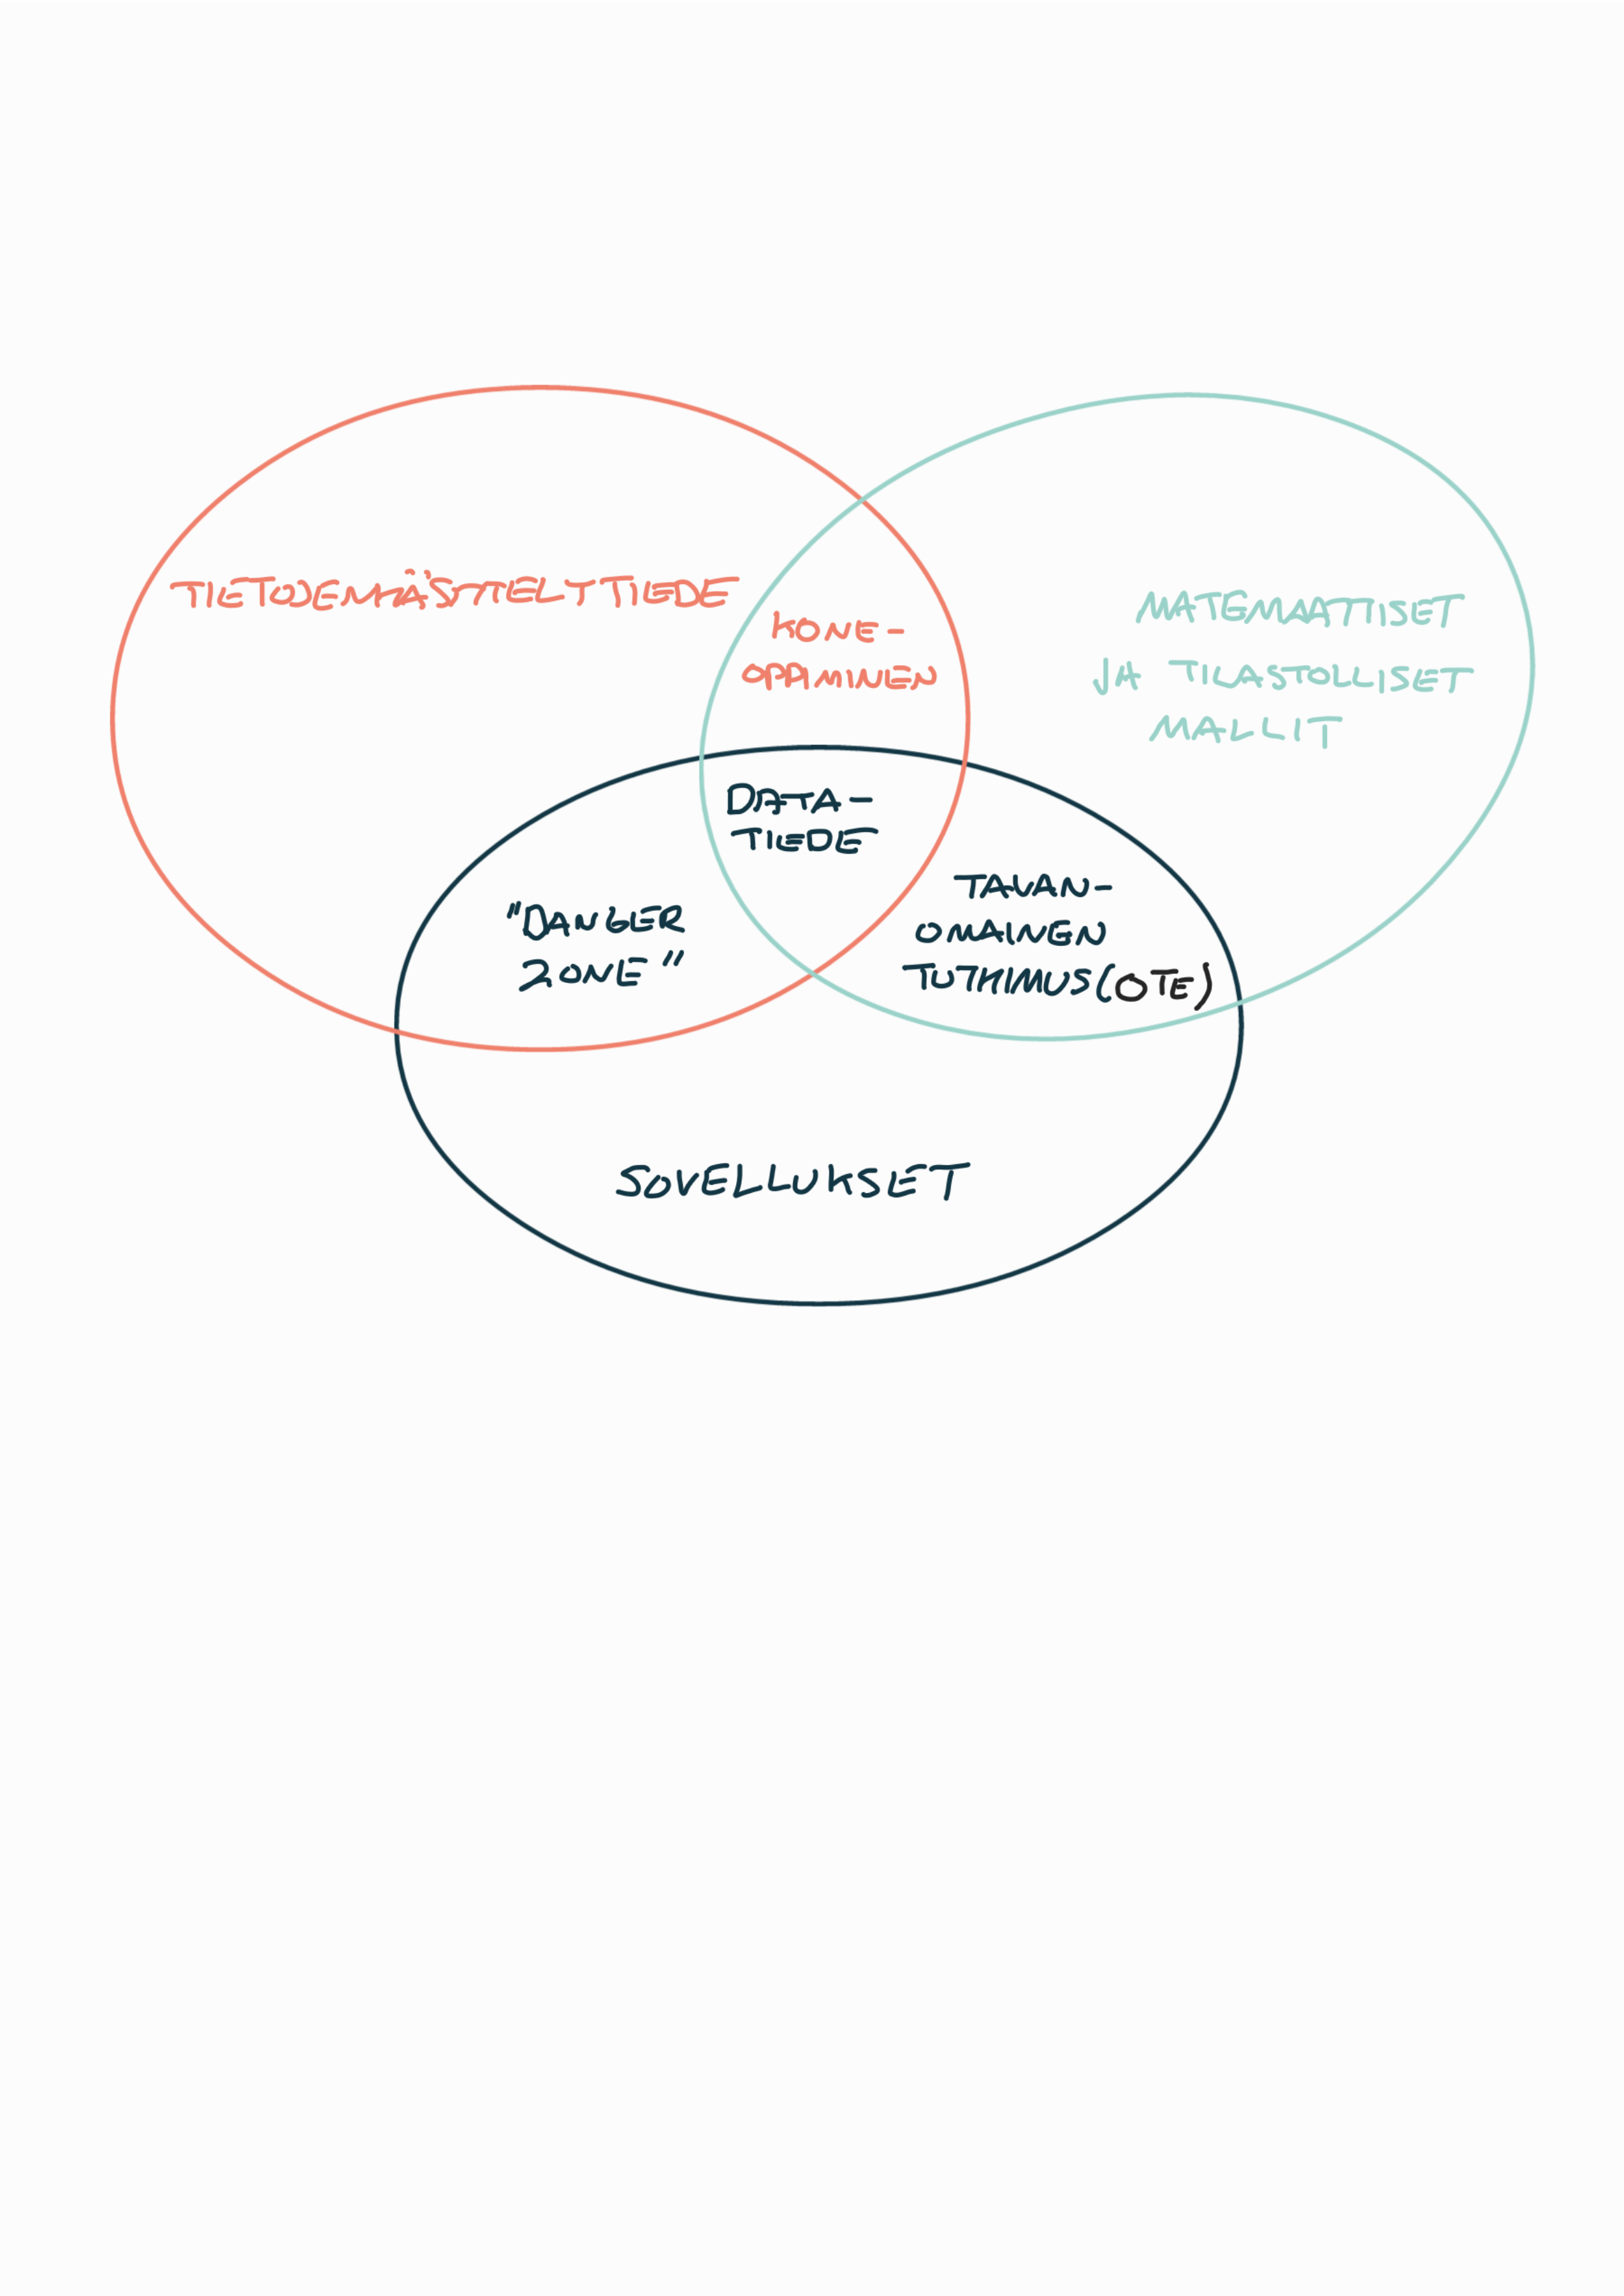 TIETOJENKÄSITTELYTIEDE
KONE-
OPPIMINEN
MATEMAATTISET
JA TILASTOLLISET
MALLIT
DATA-
TIEDE
"DANGER
ZONE"
TAVAN-
OMAINEN
TUTKIMUS (OTE)
SOVELLUKSET